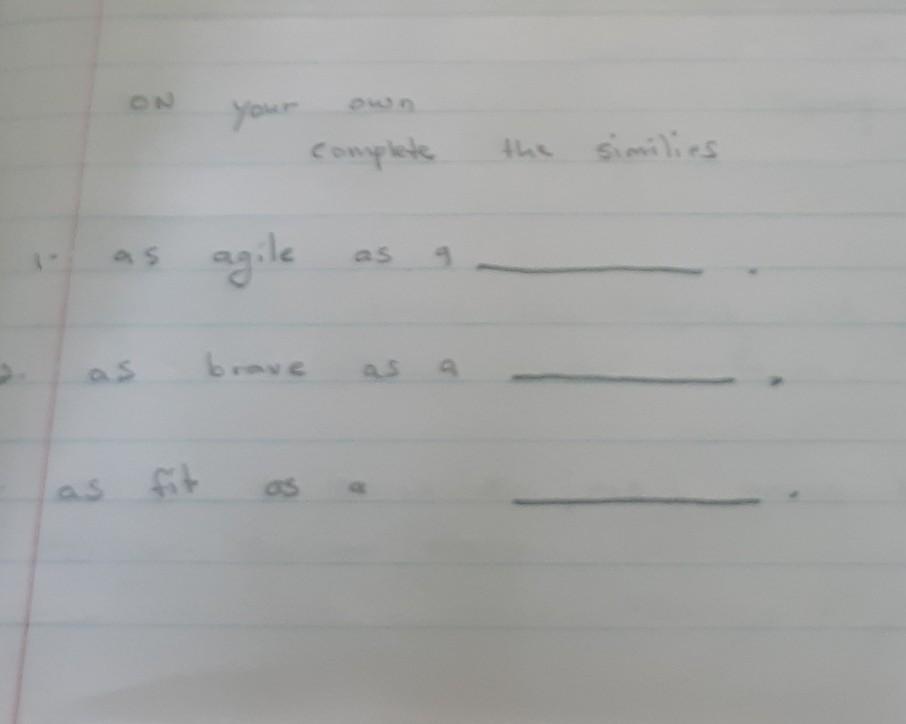 ON your own
complete the similies
1. as agile as a ________ .
2. as brave as a ________ .
as fit as a ________ .